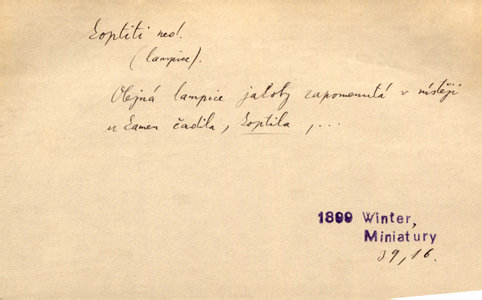 Koptiti ned.
(lampice).
Olejná lampice jakoby zapomenutá v nístěji
u kamen čadila, koptila, ...
1899 Winter,
Miniatury
39, 16.